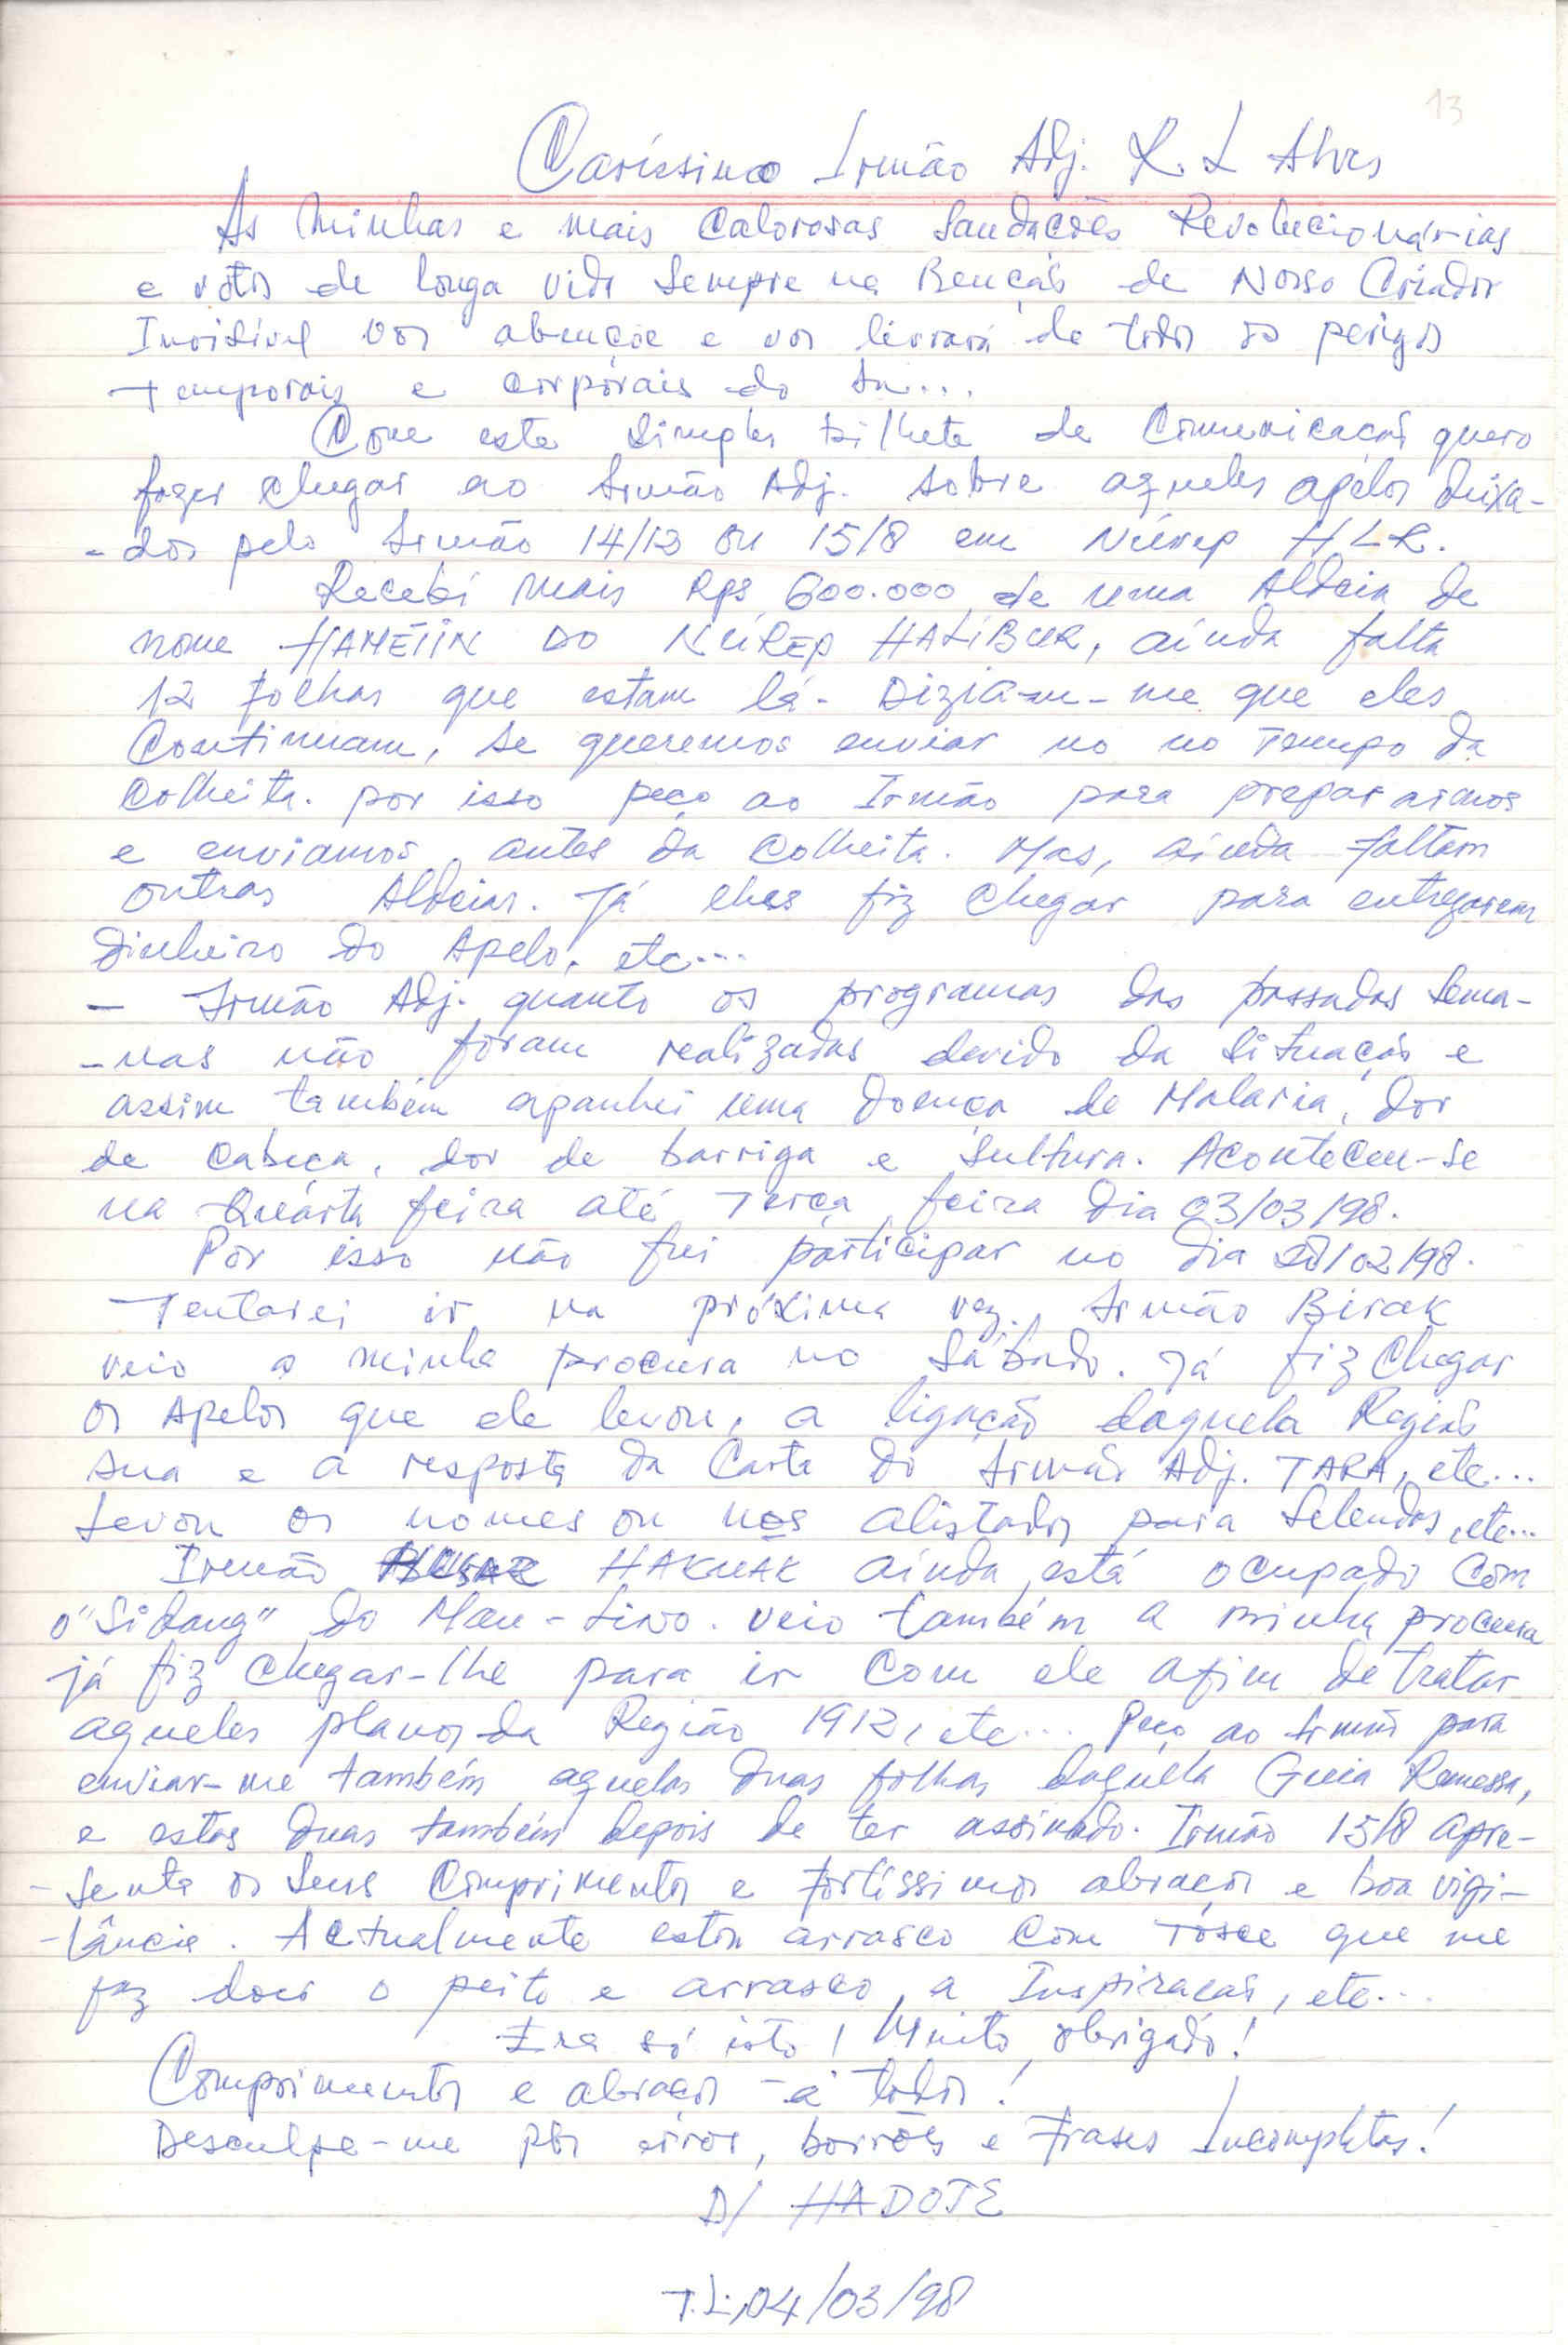 13
Caríssimo Irmão Adj. L. L Alves
As Minhas e mais Calorosas Saudações Revolucionárias
e votos de longa vida Sempre na Benção de Nosso Criador
Invisivel vos abençõe e vos livrará de todos os perigos
Temporais e corporais do
Com este Simples bilhete de Comunicação quero
fazer chegar ao Irmão Adj. Sobre aqueles apelos deixa-
-dos pelo Irmão 14/12 ou 15/8 em Núrep HLR.
Recebi mais Rps 600.000 de uma Aldeia de
nome HAMETIN DO NÚREP HALIBUR, ainda falta
12 folhas que estam lá. Diziam-me que eles
Continuam, se queremos enviar no no Tempo da
Colheita. por isso peço ao Irmão para prepararmos
e enviamos antes da Colheita. Mas, ainda faltam
outras Aldeias. Já lhes fiz chegar para entregarem
dinheiro do Apelo, etc...
- Irmão Adj. quanto os programas das passadas Sema-
-nas não foram realizadas devido da Situação e
assim também apanhei uma doença de Malaria, dor
de Cabeça, dor de barriga e Sultura. Aconteceu-se
na Quarta feira até Terça feira dia 03/03/98.
Por isso não fui participar no dia 28/02/98.
Tentarei ir na próxima vez. Irmão Birak
veio a minha procura no Sábado. Já fiz Chegar
os Apelos que ele levou, a ligação daquela Região
sua e a resposta da Carta do Irmão Adj. TARA, etc...
Levou os nomes ou nos alistados para Selendos, etc...
Irmão HAKUAK ainda está ocupado Com
o "Sidang" do Mau-Lino. veio também a minha procura
já fiz Chegar-lhe para ir Com ele afim de tratar
aqueles planos da Região 1912, etc... Peço ao Irmão para
enviar-me também aquelas duas folhas daquela Guia Remessa,
e estas duas também depois de ter assinado. Irmão 15/8 apre-
-senta os Seus Comprimentos e fortíssimos abraços e boa vigi-
-lância. Actualmente estou arrasco Com Tosse que me
faz doer o peito e arrasco a Inspiração, etc...
Era só isto! Muito obrigado!
Comprimentos e abraços -a todos!
Desculpe-me por erros, borrões e Frases Incompletas!
D/ HADOTE
T.L, 04/03/98